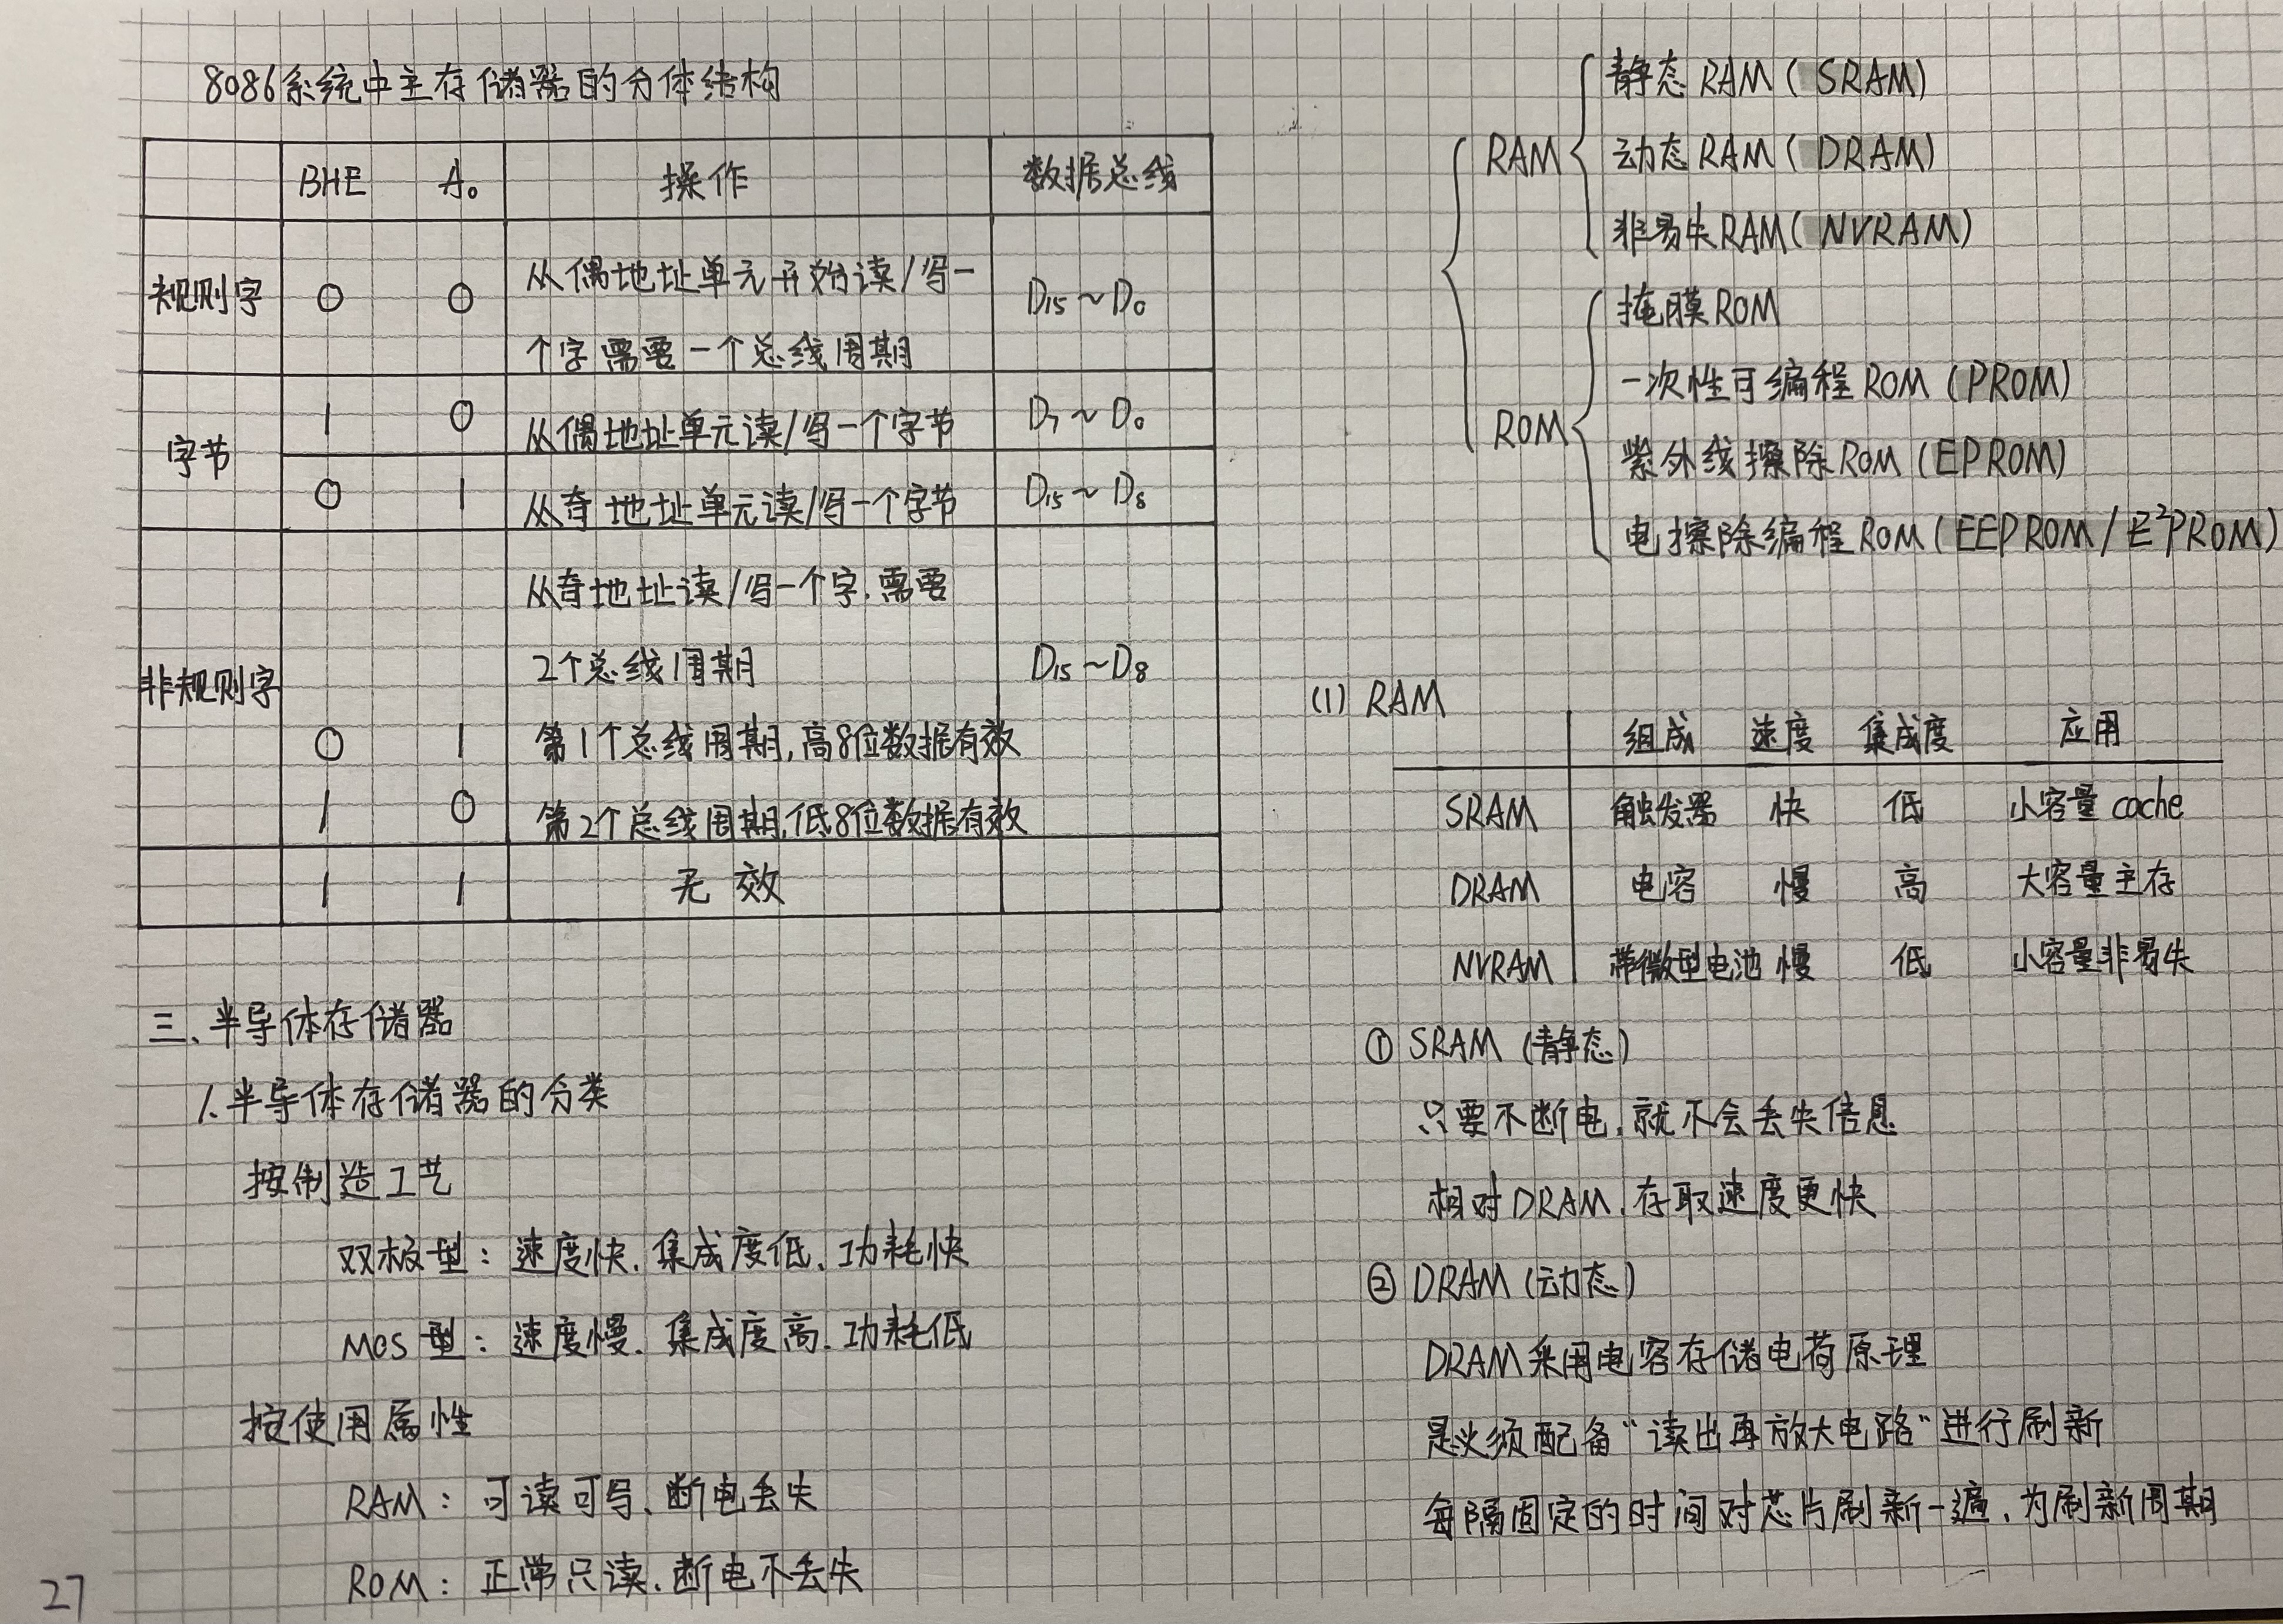 8086系统中主存储器的分体结构
BHE A₀ 操作 数据总线
规则字 0 0 从偶地址单元开始读/写一 D₁₅~D₀
个字需要一个总线周期
字节 1 0 从偶地址单元读/写一个字节 D₇~D₀
0 1 从奇地址单元读/写一个字节 D₁₅~D₈
非规则字 从奇地址读/写一个字,需要
2个总线周期 D₁₅~D₈
0 1 第1个总线周期,高8位数据有效
1 0 第2个总线周期,低8位数据有效
1 1 无效
三、半导体存储器
1.半导体存储器的分类
按制造工艺
双极型:速度快、集成度低、功耗快
MOS型:速度慢、集成度高、功耗低
按使用属性
RAM:可读可写、断电丢失
ROM:正常只读、断电不丢失
27
RAM
静态RAM(SRAM)
动态RAM(DRAM)
非易失RAM(NVRAM)
ROM
掩膜ROM
一次性可编程ROM(PROM)
紫外线擦除ROM(EPROM)
电擦除编程ROM(EEPROM/E²PROM)
(1) RAM
组成 速度 集成度 应用
SRAM 触发器 快 低 小容量cache
DRAM 电容 慢 高 大容量主存
NVRAM 带微型电池 慢 低 小容量非易失
① SRAM(静态)
只要不断电,就不会丢失信息
相对DRAM,存取速度更快
② DRAM(动态)
DRAM采用电容存储电荷原理
是必须配备“读出再放大电路”进行刷新
每隔固定的时间对芯片刷新一遍,为刷新周期